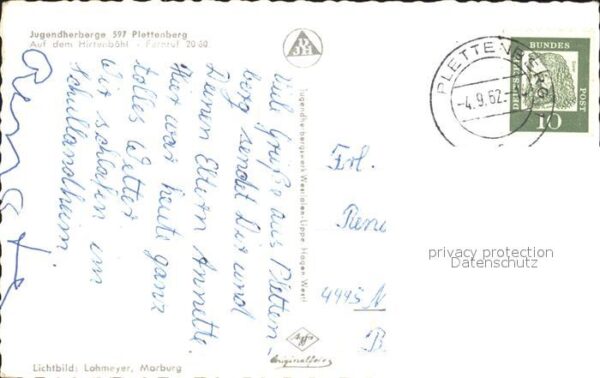 Jugendherberge 597 Plettenberg
Auf dem Hirtenböhl - Fernruf 20 60
DJH
PLETTENBERG
-4.9.62.-
DEUTSCHE
BUNDES
POST
10
Viel Grüße aus Pletten-
berg sendet Dir und
Deinen Eltern Annette.
Hier war heute ganz
tolles Wetter
Wir schlafen im
Schullandheim.
Jugendherbergswerk Westfalen-Lippe, Hagen Westf
Frl.
Rena
4445 N
B
privacy protection
Datenschutz
Agfa
Originalfoto
Lichtbild: Lohmeyer, Marburg